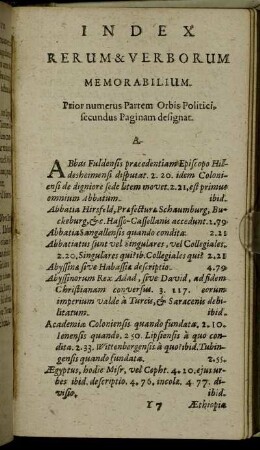 INDEX
RERUM & VERBORUM
MEMORABILIUM.
Prior numerus Partem Orbis Politici,
secundus Paginam designat.
A.
ABbas Fuldensis præcedentiam Episcopo Hil-
desheimensi disputat. 2. 20. idem Coloni-
ensi de digniore sede litem movet. 2.21, est primus
omnium Abbatum ibid.
Abbatia Hirsfeld, Præfecturæ Schaumburg, Bu-
ckeburg, &c. Hasso-Cassellanis accedunt. 1.79
Abbatia Sangallensis quando condita 2.21
Abbatiatus sunt vel singulares, vel Collegiales.
2.20, Singulares quibib. Collegiales qui? 2.21
Abyssinæ seve Habassiæ descriptio. 4.79
Abyssinorum Rex Adad, seve David, ad fidem
Christianam conversus. 3. 117. eorum
imperium valde à Turcis, & Saracenis debi-
litatum. ibid.
Academia Coloniensis quando fundata, 2.10.
Ienensis quando, 250. Lipsiensis à quo con-
dita. 2.33. Wittenbergensis à quo? ibid. Tubin-
gensis quando fundata. 2.55.
Ægyptus, hodie Misr, vel Copht. 4.20, ejus ur-
bes ibid. descriptio. 4, 76, incolæ. 4.77. di-
visio, ibid.
Y 7 Æthiopia